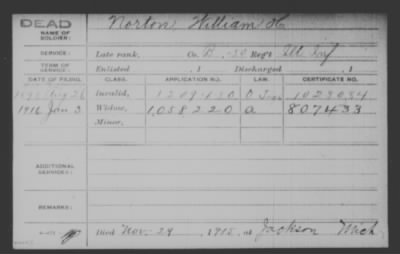 DEAD
NAME OF SOLDIER: Norton William H
SERVICE: Late rank, Co. B, 30 Reg't Ill Inf
TERM OF SERVICE: Enlisted , 1 Discharged , 1
DATE OF FILING. CLASS. APPLICATION NO. LAW. CERTIFICATE NO.
Aug 26 Invalid, 1209420 1023034
1916 Jan 3 Widow, 1,058220 a 807433
Minor,
ADDITIONAL SERVICES:
REMARKS:
Died Nov. 29, 1915, at Jackson Mich